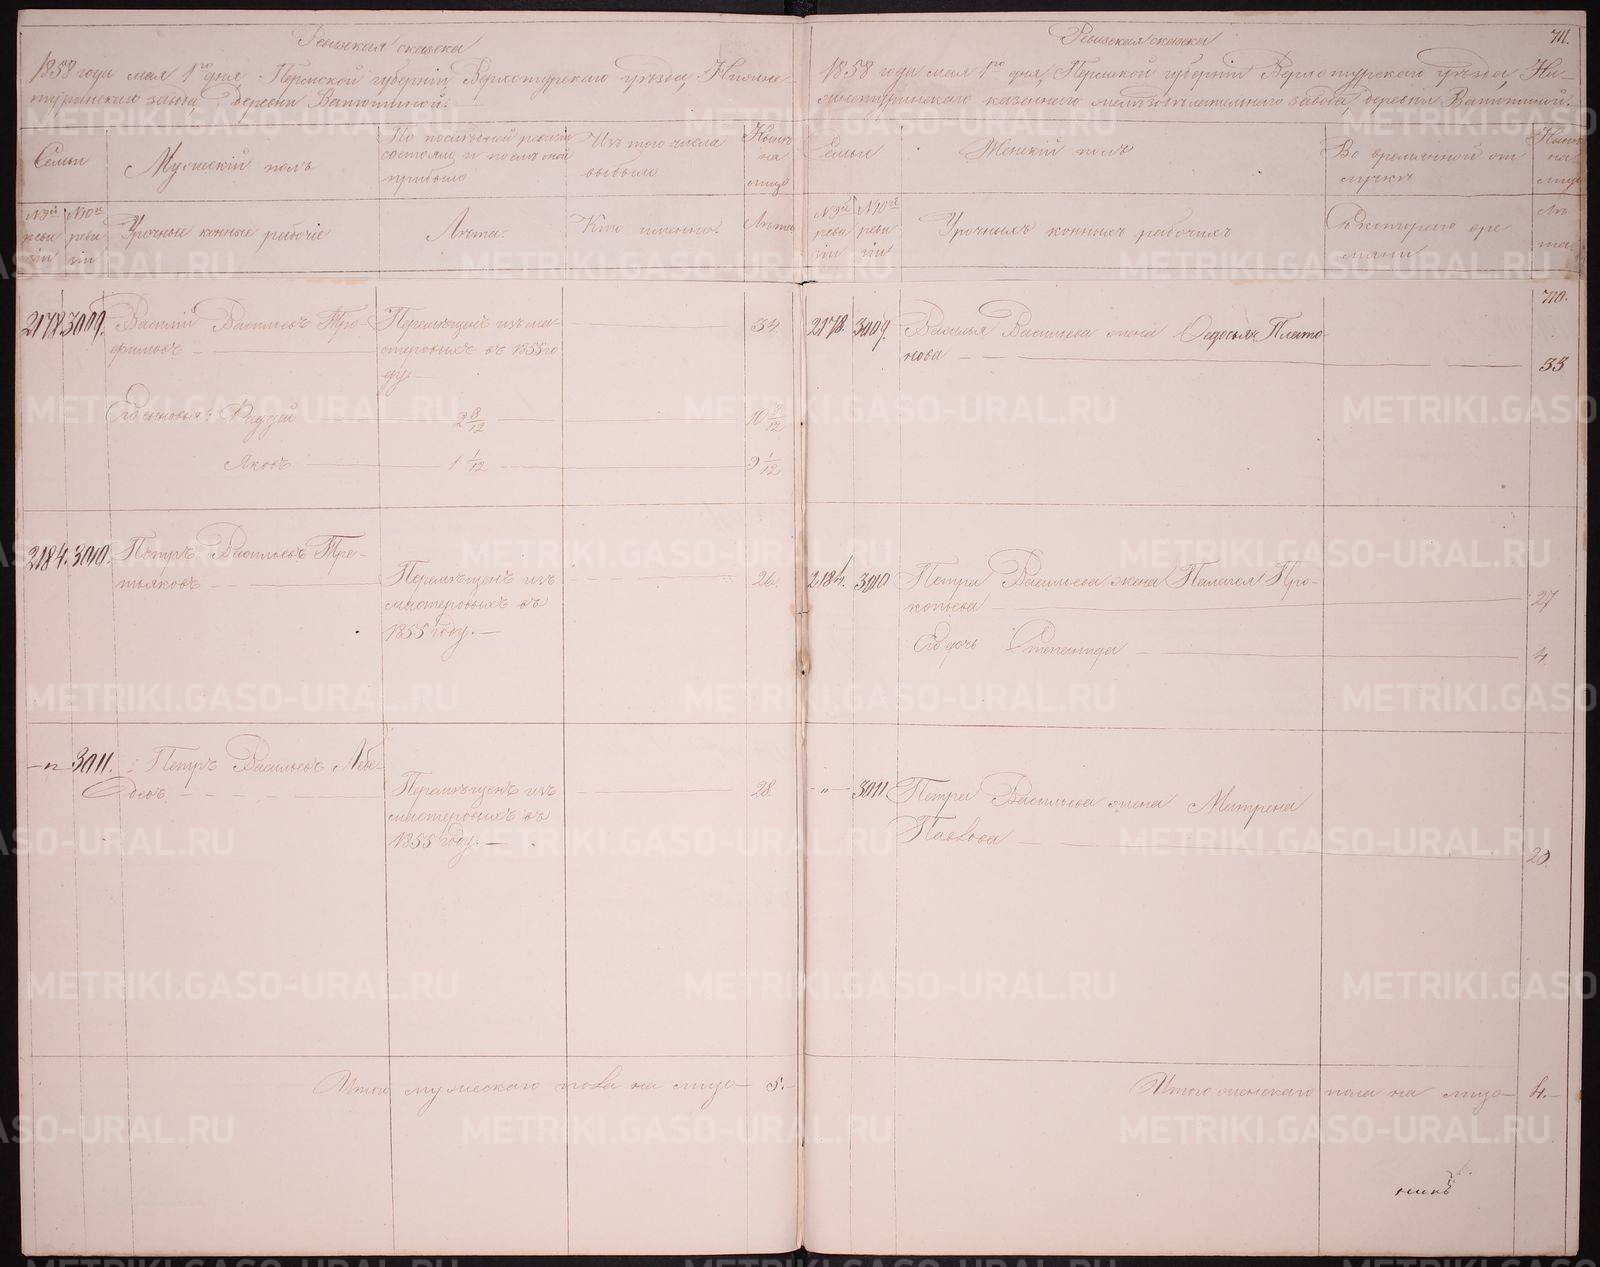 Ревизская сказка
1858 года мая 1го дня. Пермской губернии, Верхотурскаго уѣзда, Нижне-
туринскаго завода, деревни
Семьи
Мужескій полъ
По послѣдней ревизіи
состояло и послѣ оной
прибыло
Изъ того числа
выбыло
Нынѣ
на
лицо
№ 9й
реви
зіи
№ 10й
реви
зіи
Урочные конные рабочіе
Лѣта.
Кто именно.
Лѣта
2178. 3009.
Василій Васильевъ Тро-
фимовъ
Перемѣщенъ изъ ма-
стеровыхъ въ 1855 го
ду.
34
Его сыновья: Фаддей
2 8/12
10 8/12
Яковъ
1 1/12
9 1/12
2184. 3010.
Петръ Васильевъ Тре-
тьяковъ
Перемѣщенъ изъ
мастеровыхъ въ
1855 году.
26.
-"- 3011.
Петръ Васильевъ Лебе
девъ
Перемѣщенъ изъ
мастеровыхъ въ
1855 году.
28
Итого мужескаго пола на лицо 5.
Ревизская сказка
711.
1858 года мая 1го дня, Пермской губерніи Верхотурскаго уѣзда, Ни-
жнетуринскаго казеннаго желѣзодѣлательнаго завода, деревни
Семьи
Женскій полъ
Во временной от
лучкѣ
Нынѣ
на
лицо
№ 9й
реви
зіи
№ 10й
реви
зіи
Урочныхъ конныхъ рабочихъ
Съ котораго вре
мяни
Лѣ
та
710.
2178. 3009.
Василья Васильева жена Федосья Плато-
нова
33
2184. 3010
Петра Васильева жена Палагея Про-
копьева
27
Его дочь Степанида
4
-"- 3011
Петра Васильева жена Матрена
Павлова
20
Итого женскаго пола на лицо 4.
METRIKI.GASO-URAL.RU